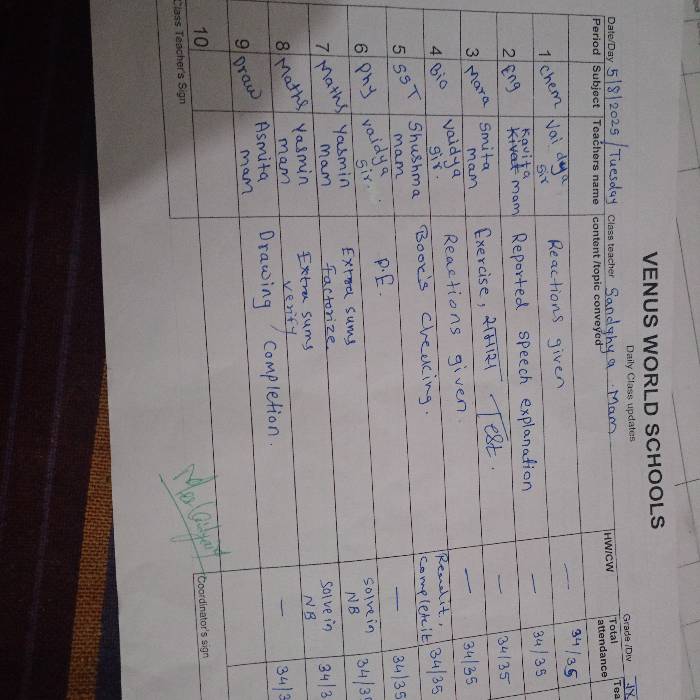 VENUS WORLD SCHOOLS
Daily Class updates
Grade /Div IX
Date/Day 5/8/2025 / Tuesday Class teacher Sandhya Mam
Period Subject Teachers name content /topic conveyed HW/CW Total attendance Tea
1 Chem Vaidya Sir Reactions given — 34/35
2 Eng Kavita mam Reported speech explanation — 34/35
3 Mara Smita mam Exercise, Test. — 34/35
4 Bio Vaidya Sir. Reactions given. — 34/35
5 SST Shushma mam Books checking. complete it 34/35
6 Phy Vaidya Sir. P.E. — 34/35
7 Maths Yasmin mam Extra sums factorize solve in NB 34/35
8 Maths Yasmin mam Extra sums verify solve in NB 34/3
9 Draw Asmita mam Drawing Completion. — 34/3
10
Class Teacher's Sign Coordinator's sign